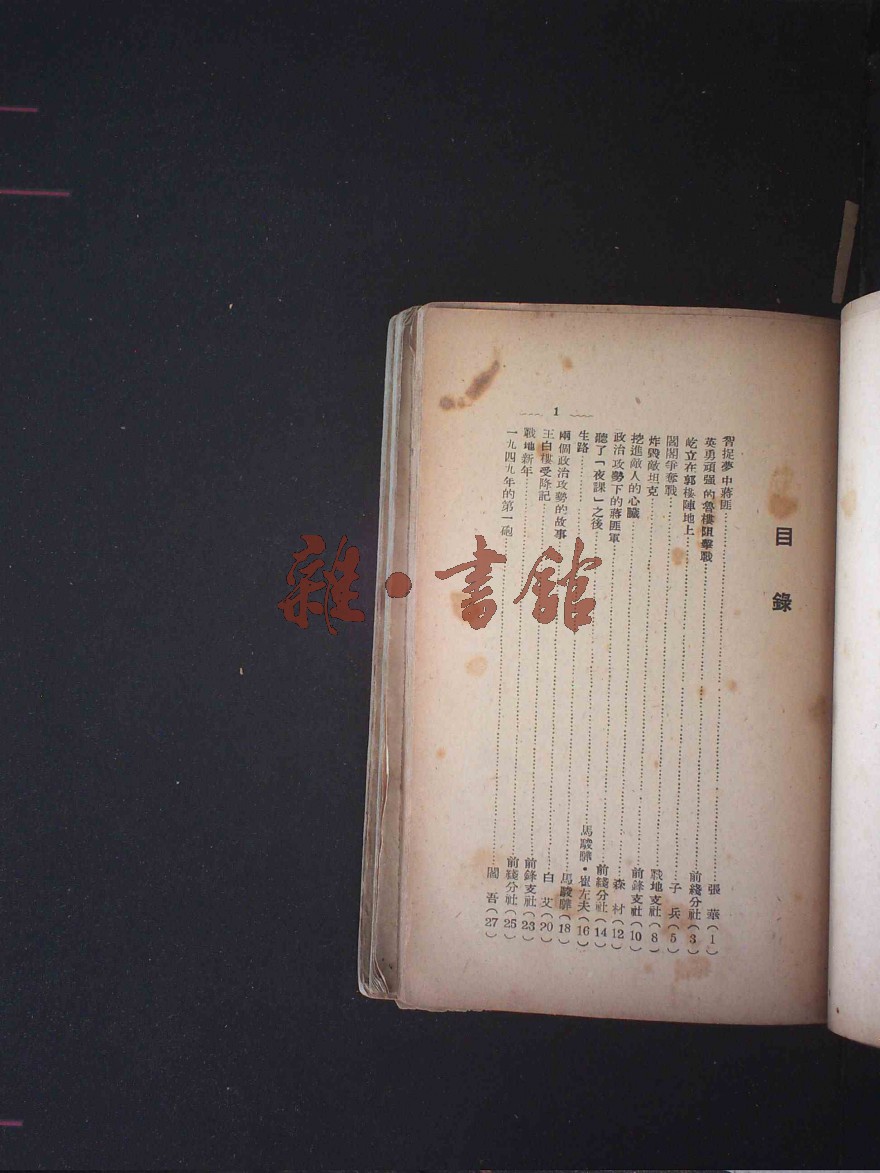 目錄
智捉夢中蔣匪……張華(1)
英勇頑强的魯樓阻擊戰……前綫分社(3)
屹立在郭樓陣地上……子兵(5)
閻閣爭奪戰……戰地支社(8)
炸毀敵坦克……前鋒支社(10)
挖進敵人的心臟……森村(12)
政治攻勢下的蔣匪軍……前綫分社(14)
聽了「夜課」之後……馬駿驊・崔左夫(16)
生路……馬駿驊(18)
兩個政治攻勢的故事……白艾(20)
王白樓受降記……前鋒支社(23)
戰地新年……前綫分社(25)
一九四九年的第一砲……閻吾(27)
1
雜·書館